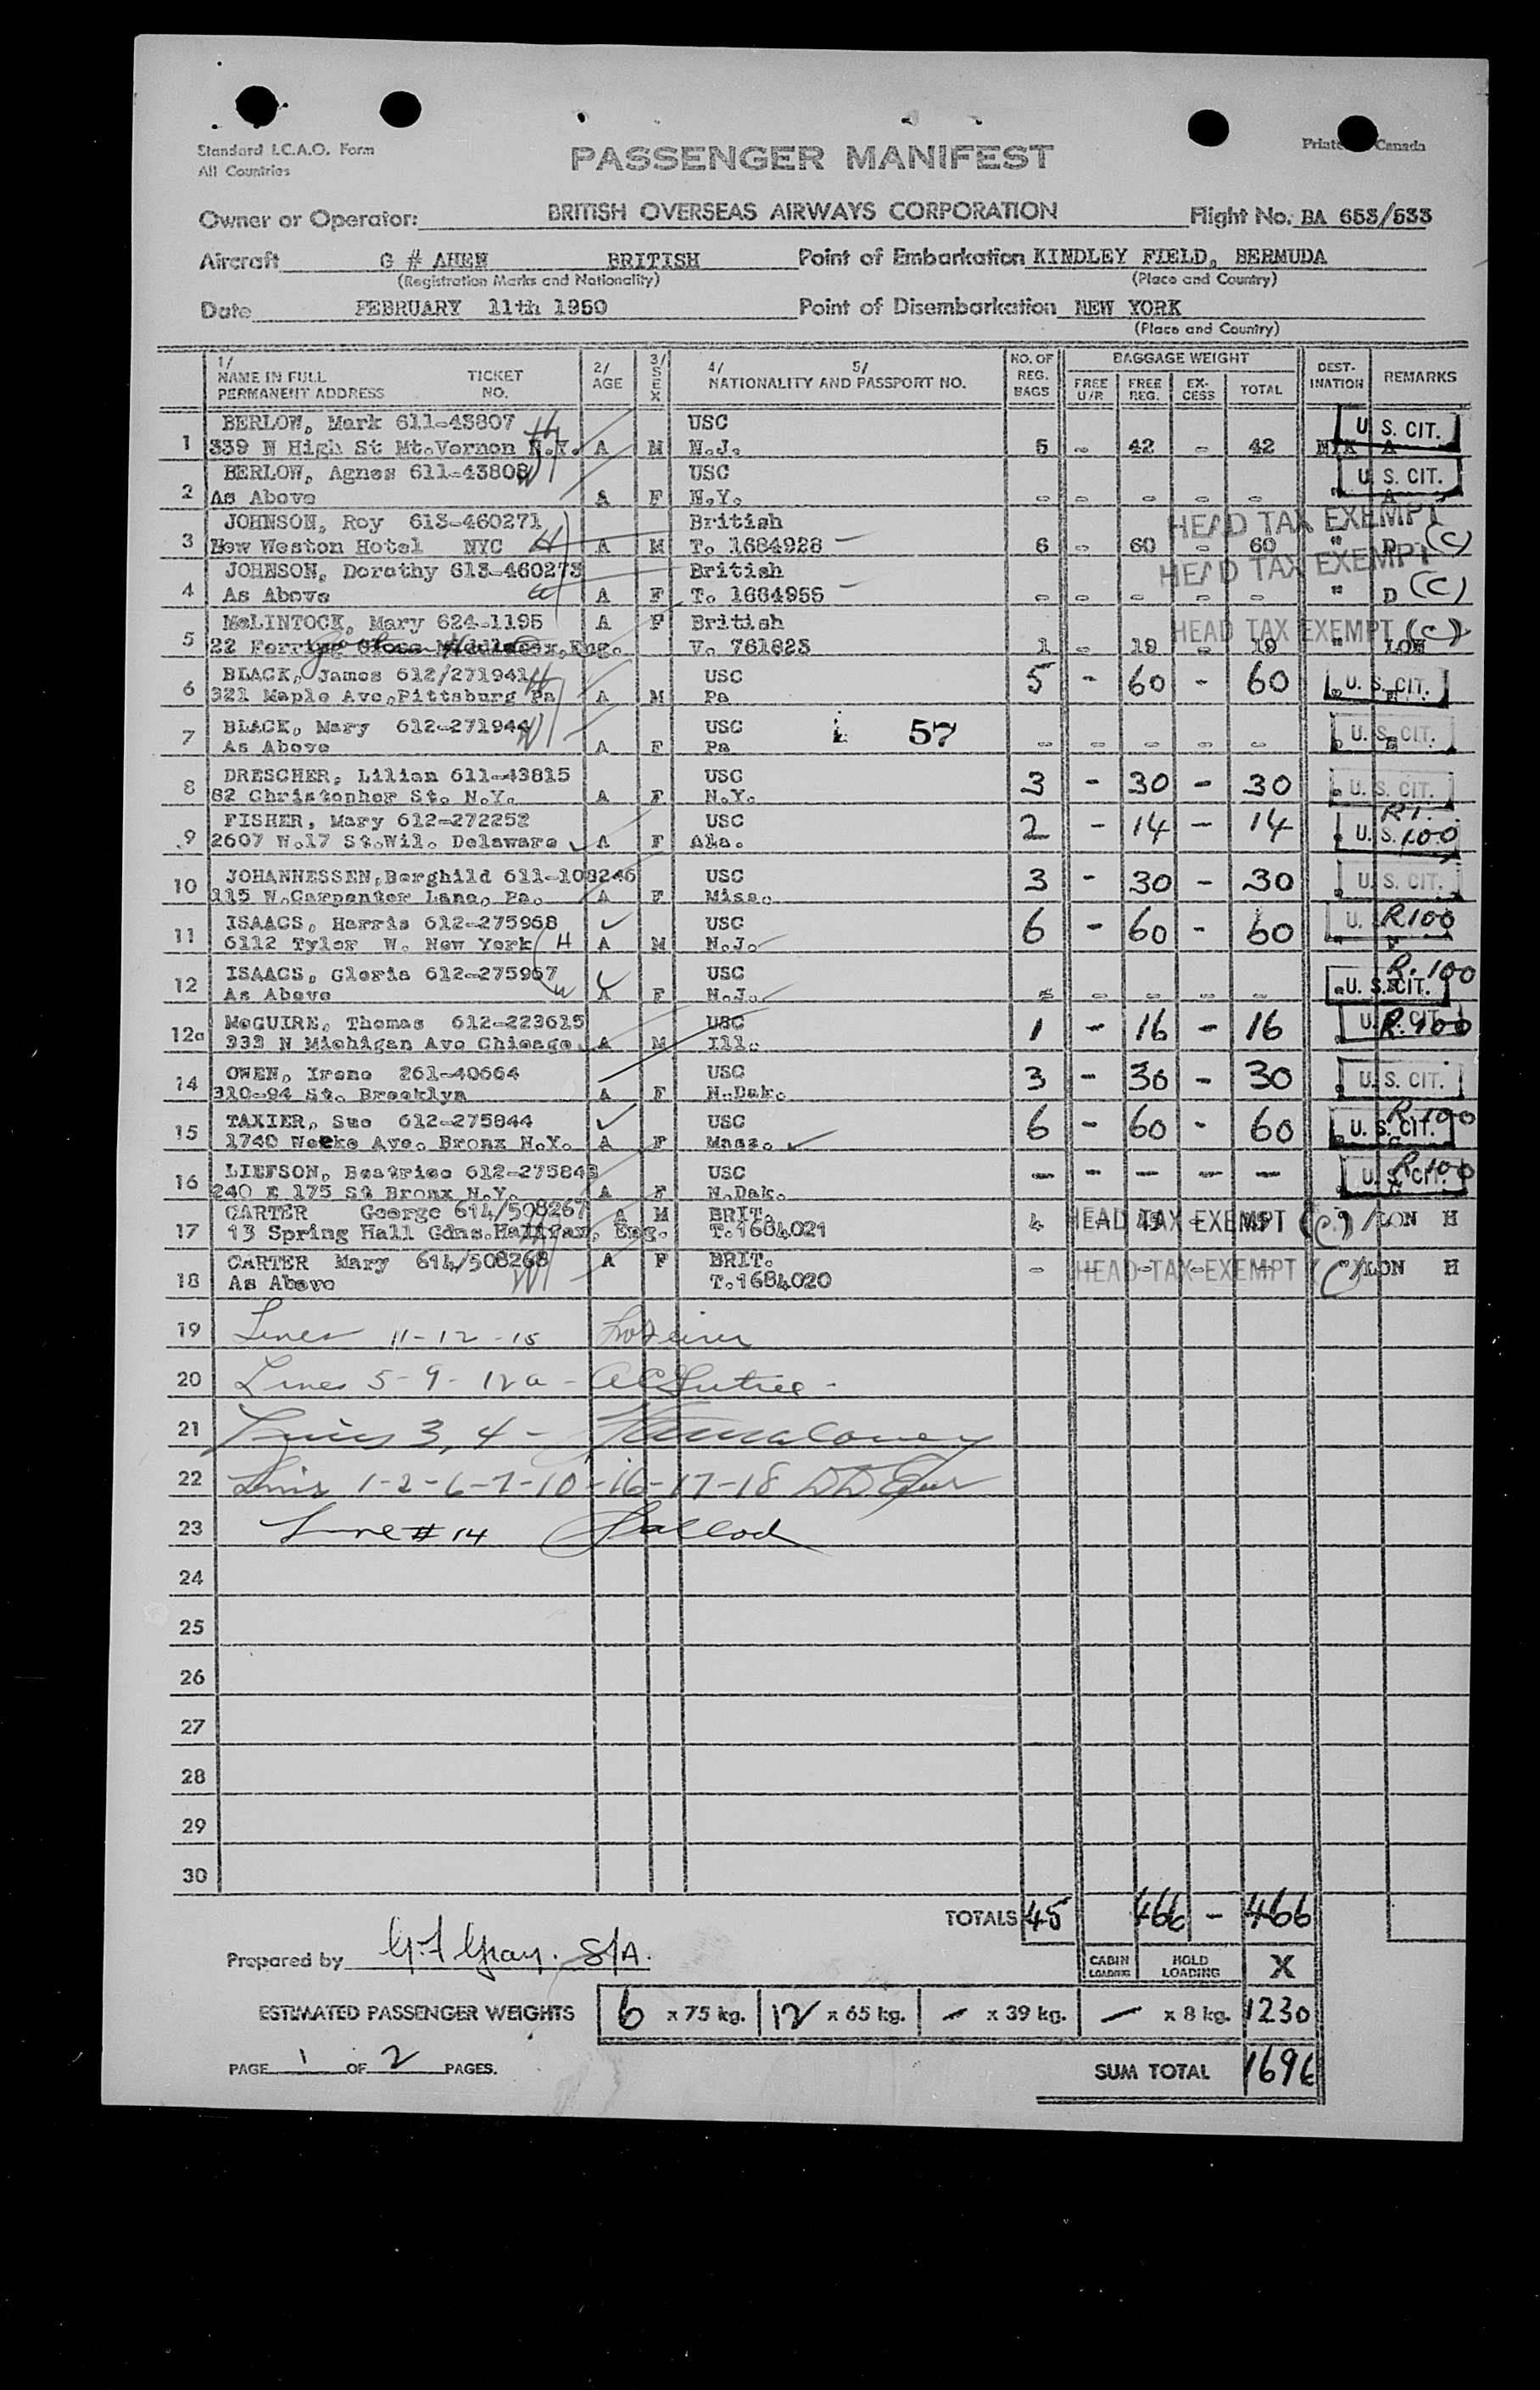 Standard I.C.A.O. Form
All Countries
PASSENGER MANIFEST
Printed Canada
Owner or Operator: BRITISH OVERSEAS AIRWAYS CORPORATION Flight No. BA 653/533
Aircraft G # AHEN BRITISH Point of Embarkation KINDLEY FIELD, BERMUDA
(Registration Marks and Nationality) (Place and Country)
Date FEBRUARY 11th 1950 Point of Disembarkation NEW YORK
(Place and Country)
1/ NAME IN FULL PERMANENT ADDRESS TICKET NO. 2/ AGE 3/ SEX 4/ 5/ NATIONALITY AND PASSPORT NO. NO. OF REG. BAGS BAGGAGE WEIGHT FREE U/R FREE REG. EX-CESS TOTAL DEST-INATION REMARKS
BERLOW, Mark 611-43807 USC U.S. CIT.
1 339 N High St Mt.Vernon N.Y. A M N.J. 5 - 42 - 42 A
BERLOW, Agnes 611-43808 USC U.S. CIT.
2 As Above A F N.Y. - - - - - " A
JOHNSON, Roy 613-460271 British HEAD TAX EXEMPT
3 New Weston Hotel NYC A M T. 1684928 6 - 60 - 60 " D (C)
JOHNSON, Dorothy 613-460273 British HEAD TAX EXEMPT
4 As Above A F T. 1684955 - - - - - " D (C)
McLINTOCK, Mary 624-1195 A F British HEAD TAX EXEMPT (C)
5 22 Close Middlesex, Eng. V. 761823 1 - 19 - 19 " LON
BLACK, James 612/271941 USC
6 321 Maple Ave, Pittsburg Pa A M Pa 5 - 60 - 60 U.S. CIT.
BLACK, Mary 612-271944 USC 57
7 As Above A F Pa - - - - - U.S. CIT.
DRESCHER, Lilian 611-43815 USC
8 82 Christopher St. N.Y. A F N.Y. 3 - 30 - 30 U.S. CIT.
FISHER, Mary 612-272252 USC
9 2607 W.17 St.Wil. Delaware A F Ala. 2 - 14 - 14 U.S. 100
JOHANNESSEN, Borghild 611-108246 USC
10 115 W.Carpenter Lane, Pa. A F Miss. 3 - 30 - 30 U.S. CIT.
ISAACS, Harris 612-275968 USC
11 6112 Tyler W. New York H A M N.J. 6 - 60 - 60 U. R100
ISAACS, Gloria 612-275967 USC R.100
12 As Above A F N.J. - - - - - U.S. CIT.
McGUIRE, Thomas 612-223615 USC
12a 333 N Michigan Ave Chicago A M Ill. 1 - 16 - 16 U.S. CIT. R.100
OWEN, Irene 261-40664 USC
14 310-94 St. Brooklyn A F N.Dak. 3 - 30 - 30 U.S. CIT.
TAXIER, Sue 612-275844 USC R.100
15 1740 Weeks Ave. Bronx N.Y. A F Mass. 6 - 60 - 60 U.S. CIT.
LIEFSON, Beatrice 612-275843 USC R.100
16 240 E 175 St Bronx N.Y. A F N.Dak. - - - - - U.S. CIT.
CARTER George 614/508267 A M BRIT. 4 HEAD TAX EXEMPT (C) /LON H
17 13 Spring Hall Gdns. Halifax, Eng. T.1684021
CARTER Mary 614/508268 A F BRIT. - HEAD TAX EXEMPT (C) "/LON H
18 As Above T.1684020
19 Lines 11-12-15
20 Lines 5-9-12a -
21 Lines 3, 4 -
22 Lines 1-2-6-7-10-16-17-18
23 Line # 14
24
25
26
27
28
29
30
TOTALS 45 466 - 466
Prepared by G.F Gray. S/A.
CABIN LOADING HOLD LOADING X
ESTIMATED PASSENGER WEIGHTS 6 x 75 kg. 12 x 65 kg. - x 39 kg. - x 8 kg. 1230
PAGE 1 OF 2 PAGES. SUM TOTAL 1696